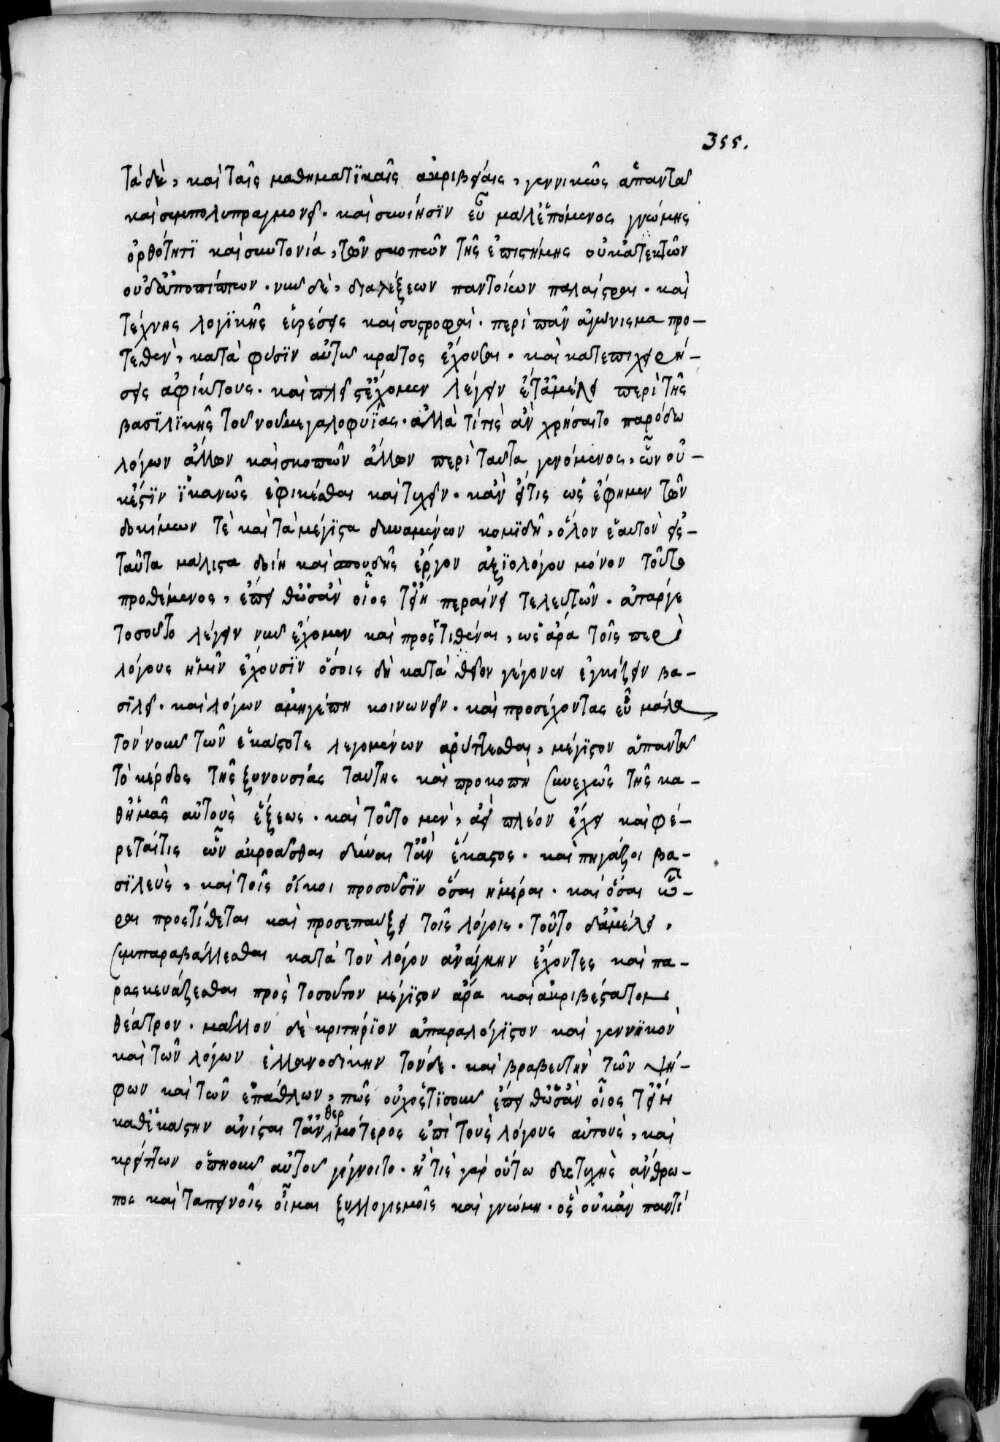 355.
τὰ δὲ, καὶ ταῖς μαθηματϊκαῖς ἀκριβείαις, γεννικῶς ἅπαντα
καὶ συμπολυπραγμονεῖ. καὶ συνίησϊν εὖ μάλ' ἑπόμενος γνώμης
ὀρθότητϊ καὶ συντονία, τῶν σκοπῶν τῆς ἐπιστήμης
οὐδ' ἀποπίπτων. νῦν δὲ, διαλέξεων παντοίων παλαῖστραι. καὶ
τέχνης λογϊκῆς εὑρέσεις καὶ συστροφαὶ. περὶ πᾶν ἀγώνισμα προ-
τεθὲν, κατὰ φύσϊν αὕτω κράτος ἔχουσαι. καὶ κατεπιχειρή-
σεις ἀφύκτους. καὶ πλείστ' ἔχομεν λέγειν ἔτ' ἀμέλει περὶ τῆς
βασϊλϊκῆς τοῦ νοῦ μεγαλοφυΐας. ἀλλὰ τί τὶς ἂν χρήσαιτο παρόδω
λόγων ἄλλων καὶ σκοπῶν ἄλλων περὶ ταῦτα γενόμενος, ὧν οὐ-
κέστϊν ἱκανῶς ἐφικέσθαι καὶ τυχεῖν. κἂν εἴ τις ὡς ἔφημεν τῶν
δοκίμων τὲ καὶ τὰ μέγϊστα δυναμένων κομϊδῆ, ὅλον ἑαυτὸν εἰς
ταῦτα μάλιστα δοίη καὶ σπουδῆς ἔργον ἀξϊολόγου μόνον τοῦτο
προθέμενος, περαίνει τελευτῶν. ἀπάργε
τοσοῦτο λέγειν νῦν ἔχομεν καὶ προστιθέναι, ὡς ἄρα τοῖς περὶ
λόγους ἡμῖν ἔχουσϊν ὅσοις δὴ κατὰ θεὸν γέγονεν ἐγγίζειν βα-
σϊλεῖ. καὶ λόγων ἀμηγέπη κοινωνεῖν. καὶ προσέχοντας εὖ μάλα
τὸν νοῦν τῶν ἑκάστοτε λεγομένων ἀρύττεσθαι, μέγϊστον ἅπαντα
τὸ κέρδος τῆς ξυνουσίας ταύτης καὶ προκοπὴ συνεχῶς τῆς κα-
θ' ἡμᾶς αὐτοὺς ἕξεως. καὶ τοῦτο μὲν, ἀεὶ πλέον ἔχει καὶ φέ-
ρεταί τις ὧν ἀκροᾶσθαι δύναιτ' ἂν ἕκαστος. καὶ πηγάζει βα-
σϊλεὺς, καὶ τοῖς οἴκοι προσοῦσϊν ὅσαι ἡμέραι. καὶ ὅσαι ὧ-
ραι προστίθεται καὶ προσεπαυξεῖ τοῖς λόγοις. τοῦτο δ' ἀμέλει,
συμπαραβάλλεσθαι κατὰ τὸν λόγον ἀνάγκην ἔχοντες καὶ πα-
ρασκευάζεσθαι πρὸς τοσοῦτον μέγϊστον ἄρα καὶ ἀκριβέστατον
θέατρον. μᾶλλον δὲ κριτήρϊον ἀπαραλόγϊστον καὶ γεννϊκὸν
καὶ τῶν λόγων ἑλλανοδίκην τόνδε. καὶ βραβευτὴν τῶν ψή-
φων καὶ τῶν ἐπάθλων, πῶς οὐχ ὁστϊσοῦν
καθεκάστην ἀνίσαιτ' ἂν θερμότερος ἐπὶ τοὺς λόγους αὐτοὺς, καὶ
κρείττων ὅπηοῦν αὑτοῦ γίγνοιτο. ἢ τὶς γὰρ οὕτω δυστυχὴς ἄνθρω-
πος καὶ ταπεινοῖς οἶμαι ξυλλογισμοῖς καὶ γνώμη. ὃς οὐκ ἂν παντὶ